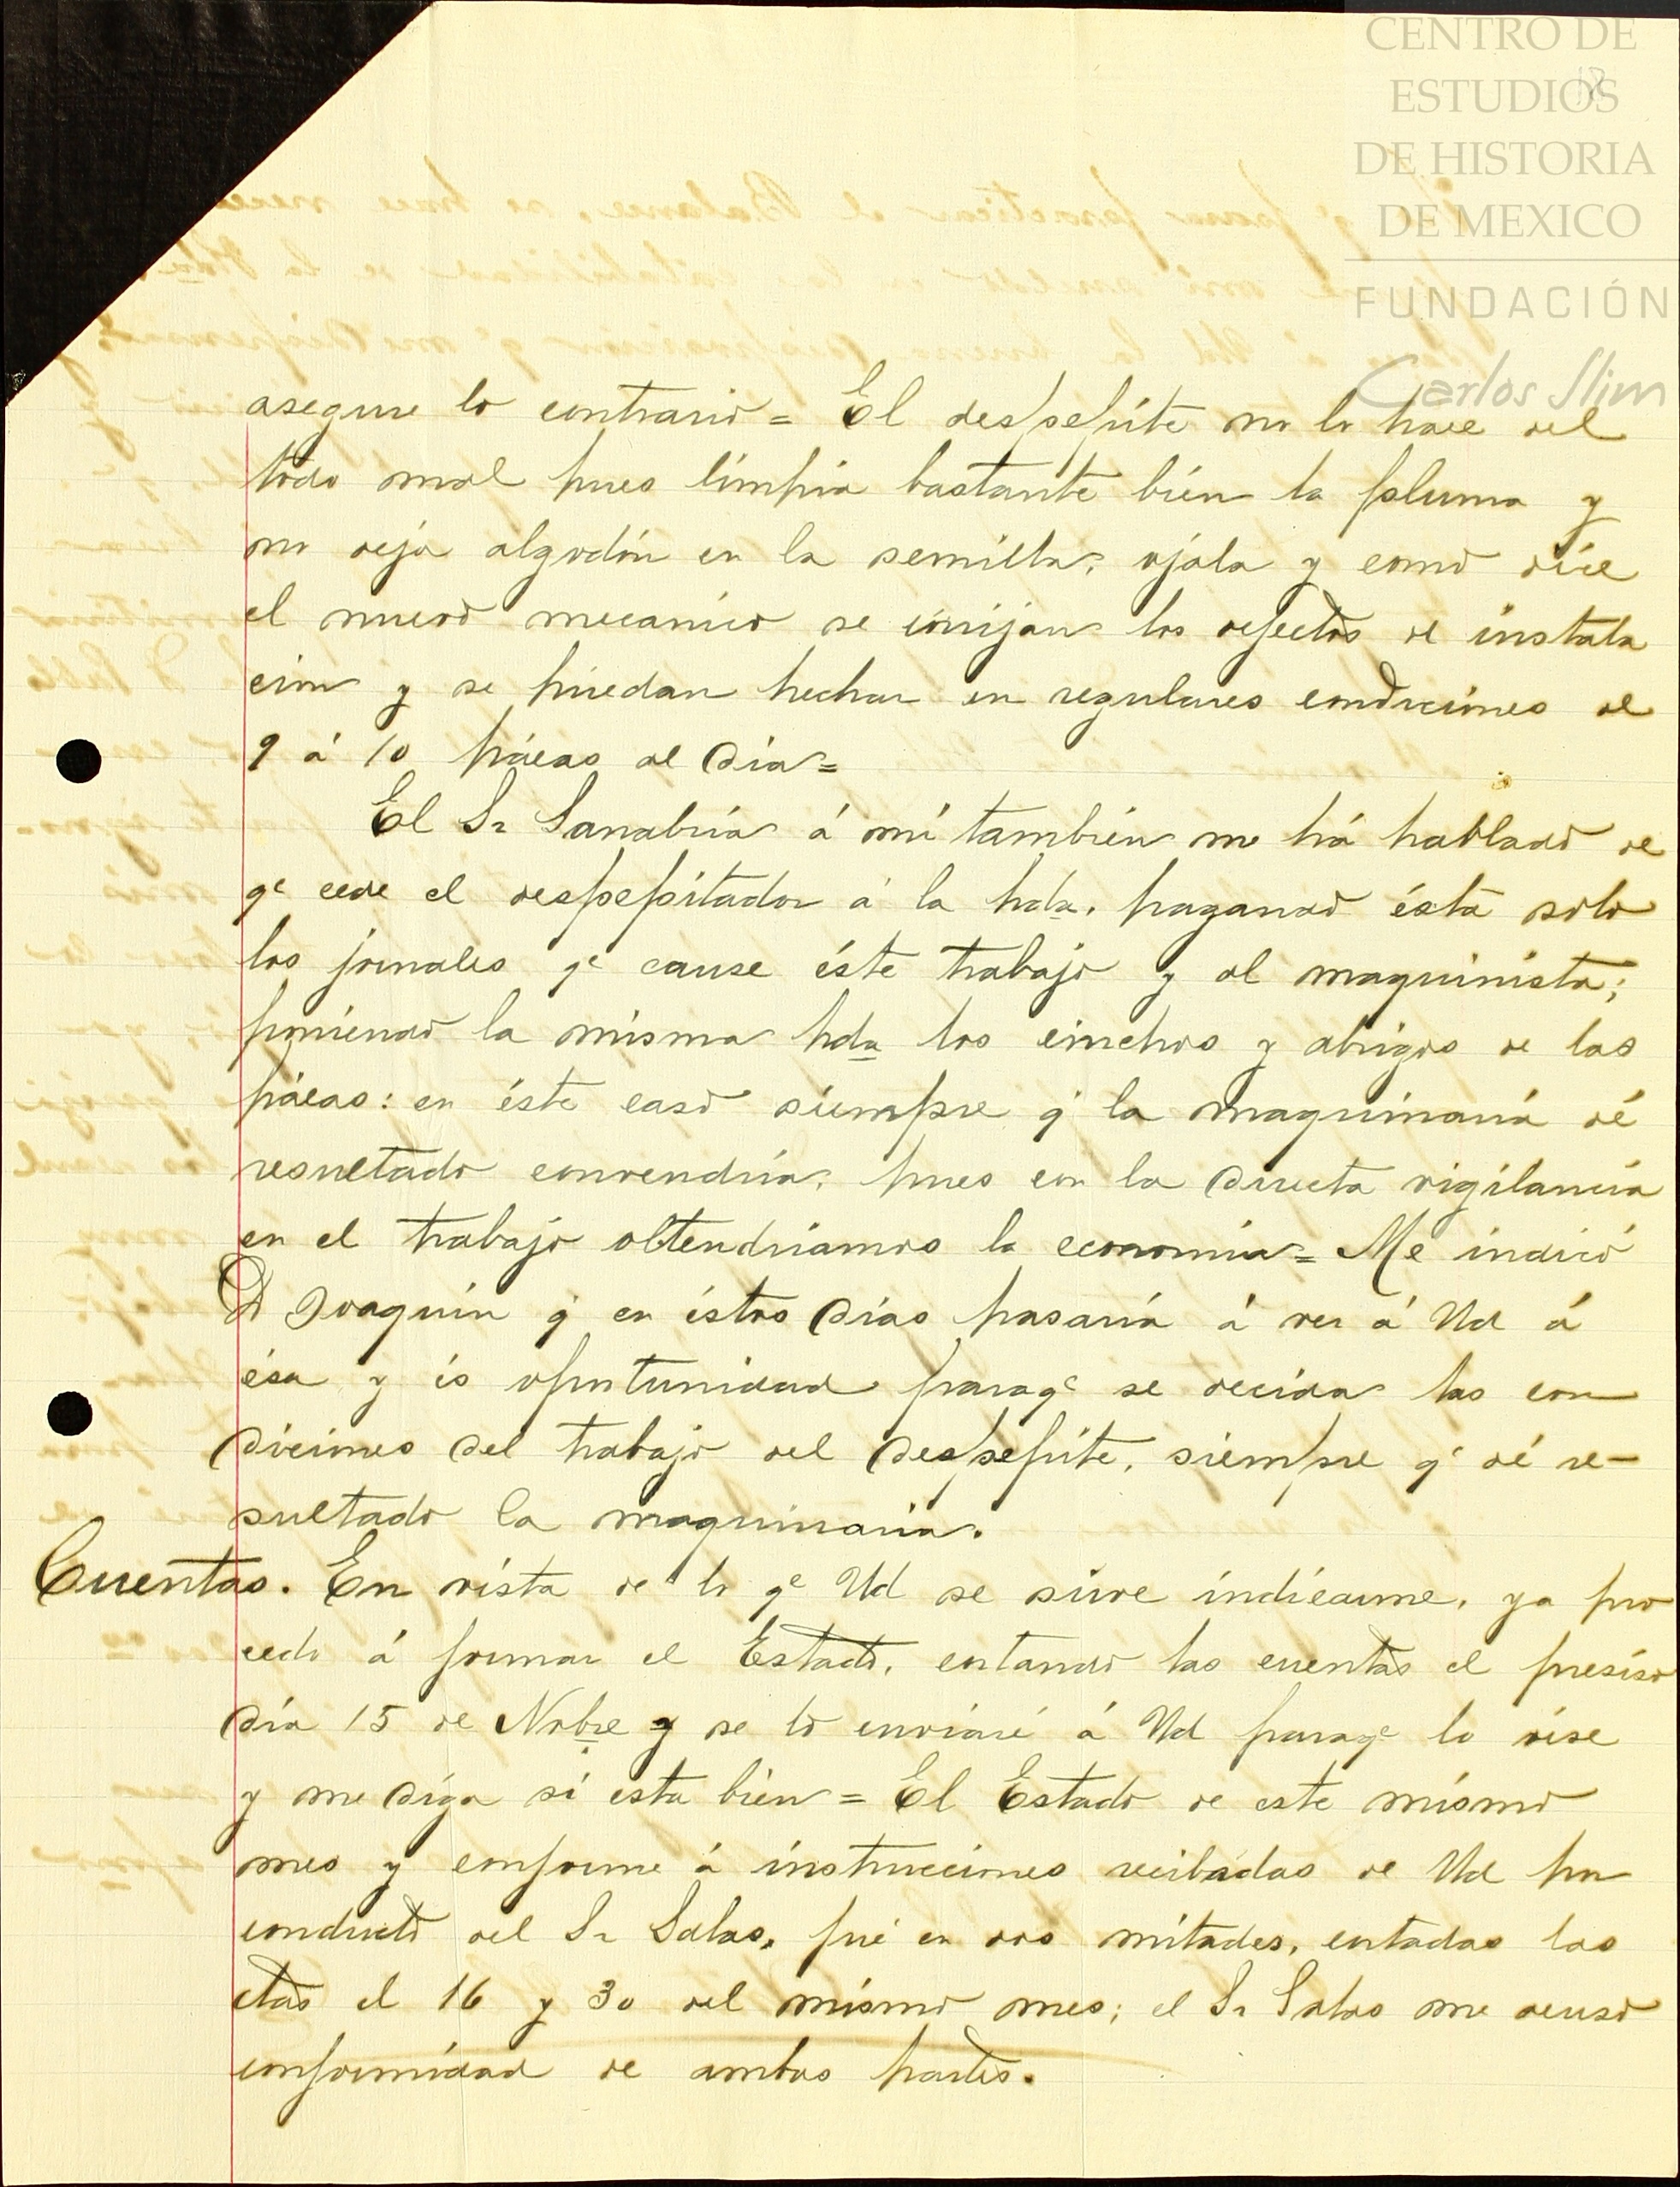 CENTRO DE
ESTUDIOS
DE HISTORIA
DE MEXICO
FUNDACIÓN
Carlos Slim
asegure lo contrario = El despepite no lo hace del
todo mal pues limpia bastante bién la pluma y
no deja algodón en la semilla, ojala y como dice
el nuevo mecanico se corrijan los defectos de instala
cion y se puedan hechar en regulares condiciones de
9 á 10 pácas al dia =
El Sr Sanabria á mi también me há hablado de
qe cede el despepitador á la hda. pagando ésta solo
los jornales qe cause éste trabajo y al maquinista;
poniendo la misma hda los cinchos y abrigos de las
pácas: en éste caso siempre q' la maquinaria dé
resultado convendria, pues con la directa vigilancia
en el trabajo obtendriamos la economia = Me indicó
D Joaquin q' en éstos dias pasaria á ver á Ud á
ésa y és oportunidad paraqe se decida las con
diciones del trabajo del despepite, siempre q' dé re-
sultado la maquinaria.
Cuentas. En vista de lo qe Ud se sirve indicarme, ya pro
cedo á formar el Estado, cortando las cuentas el presiso
dia 15 de Nobre y se lo enviaré á Ud paraqe lo vise
y me diga si esta bién = El Estado de este mismo
mes y conforme á instrucciones recibidas de Ud por
conducto del Sr Salas, fué en dos mitades, cortadas las
ctas el 16 y 30 del mismo mes; el Sr Salas me acusó
conformidad de ambas partes.